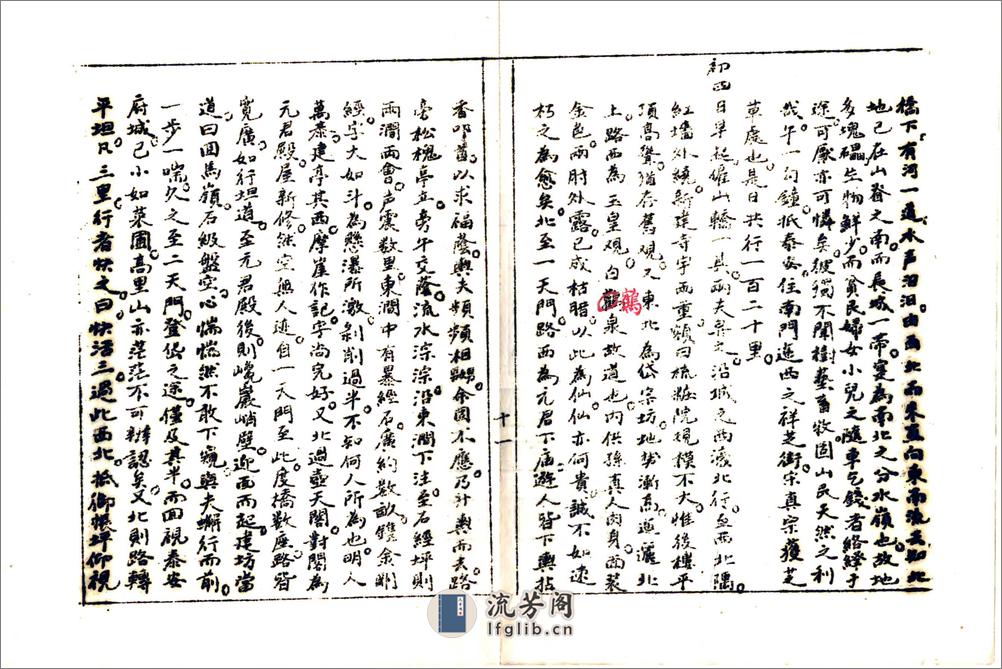 橋下有河一道水声汨汨由西北而来直向東南流至此北
地已在山脊之南而長城一帶寔為南北之分水嶺也故地
多塊礧生物鮮少而貧民婦女小兒之隨車乞錢者絡繹于
途可厭亦可憐矣彼獨不聞樹畜牧固山民天然之利
哉午一句鐘抵泰安住南門迤西之祥芝街宋真宗獲芝
草處也是日共行一百二十里
初四日早起雇山轎一具兩夫舁之沿城之西濠北行至西北隅
紅墻外繞新建寺宇而重顏曰梳粧院規模不大惟後樓平
頂高聳猶存舊觀又東北為岱宗坊地勢漸高迤邐北
上路西為玉皇觀白鶴泉故道也内供孫真人肉身西装
金色兩肘外露已成枯腊以此為仙仙亦何貴誠不如速
朽之為愈矣北至一天門路西為元君下庙遊人皆下輿拈
十一
香叩首以求福蔭輿夫頻頻相嬲余固不應乃升輿而去路
旁松槐亭立旁午交蔭流水淙淙沿東澗下注至石經坪則
兩澗雨會声震数里東澗中有暴經石廣約数畝鐫金剛
經字大如斗為懸瀑所激剝削過半不知何人所為也明人
萬恭建亭其西摩崖作記字尚完好又北過壺天閣對閣為
元君殿屋新修然空無人迹自一天門至此度橋数座路皆
寬廣如行坦道至元君殿後則巉巖峭壁迎面而起建坊當
道曰囬馬嶺石級盤空心惴惴然不敢下窺輿夫蠏行而前
一步一喘久之至二天門登岱之途僅及其半而囬視泰安
府城已小如菜圃高里山亦茫茫不可辨認矣又北則路轉
平坦凡三里行者快之曰快活三過此西北抵御帳坪仰視
流芳阁
lfglib.cn